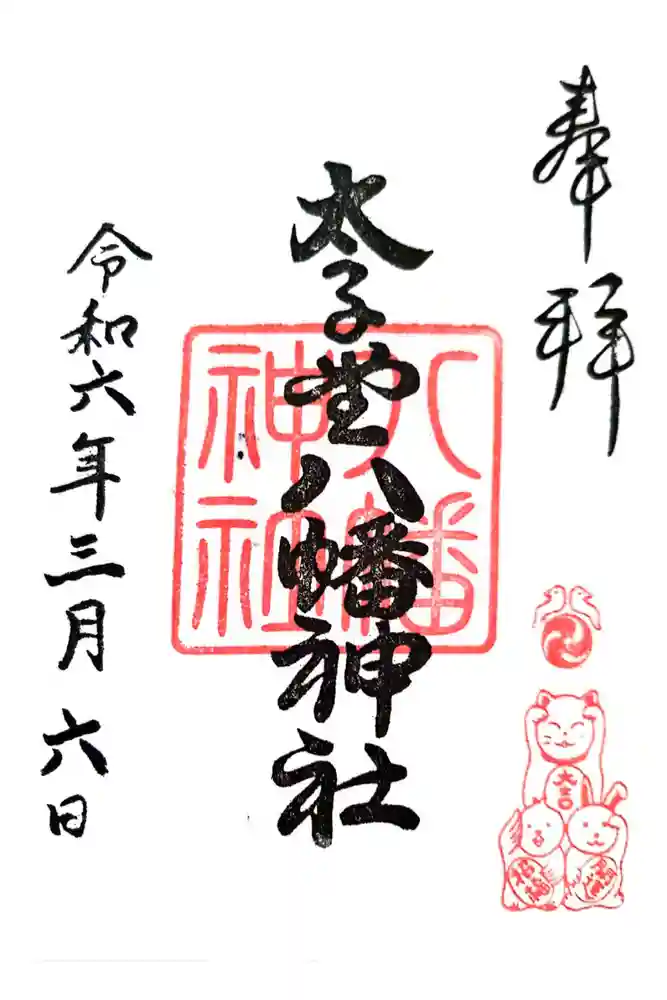 奉拝
太子堂八幡神社
八幡
神社
令和六年三月六日
大吉
招福